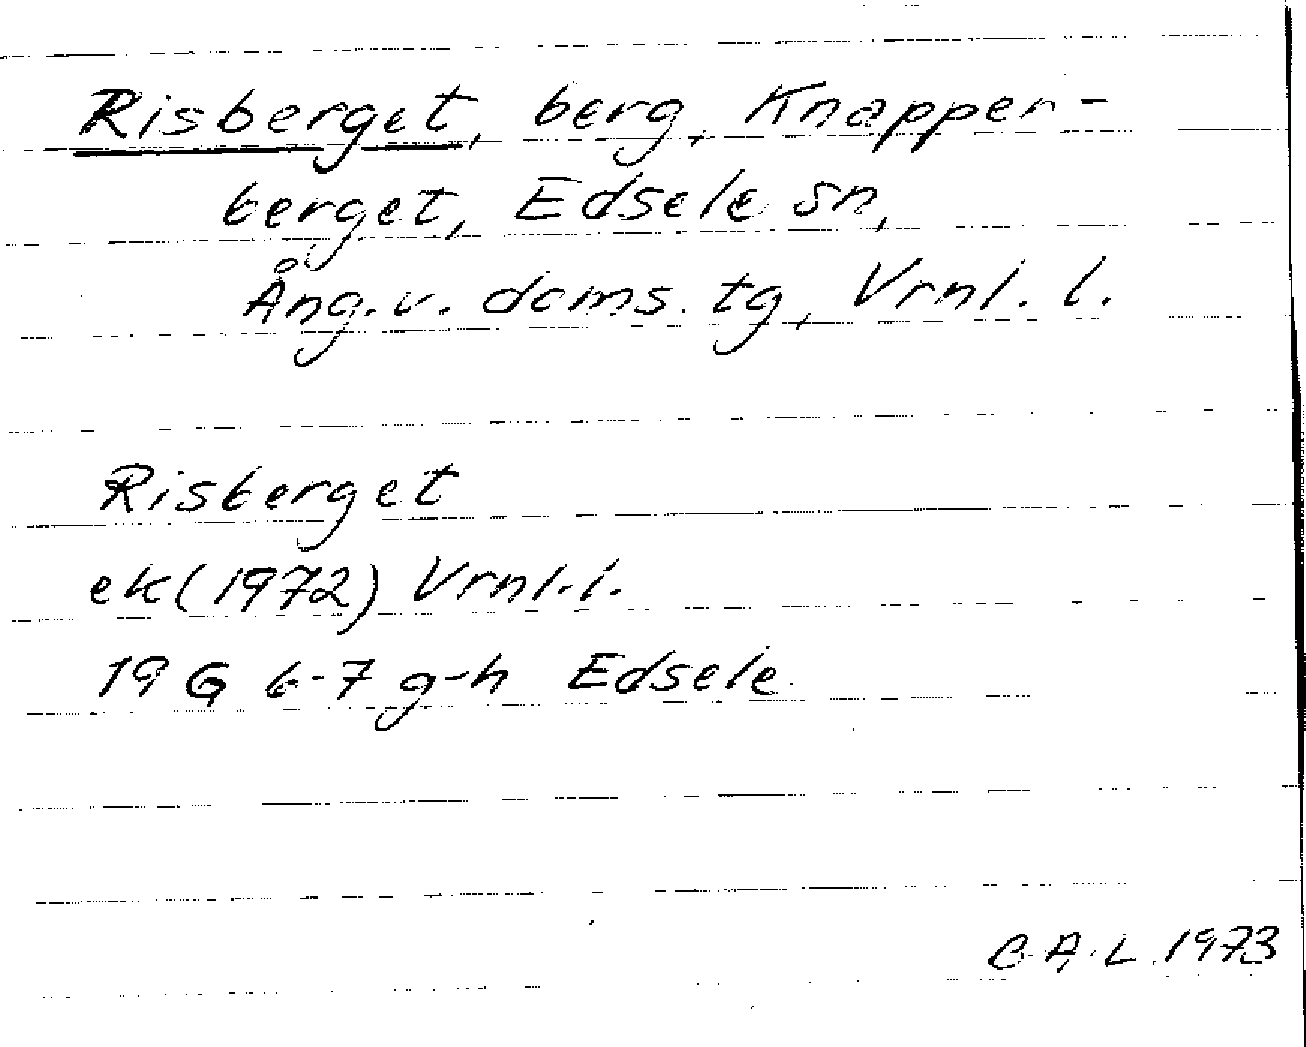 Risberget, berg, Knapper-
berget, Edsele sn,
Ång. v. doms. tg, Vrnl. l.
Risberget
ek (1972) Vrnl. l.
19 G 6-7 g-h Edsele
C.A.L. 1973